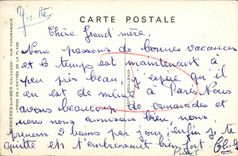 CARTE POSTALE
Chère Grand'mère.
Nous passons de bonnes vacances
et le temps est maintenant à
peu près beau, j'espère qu'il
en est de même à Paris. Nous
avons beaucoup de camarades et
nous nous amusons bien, nous
prenons 2 bains par jour, enfin je te
quitte et t'embrassant bien fort